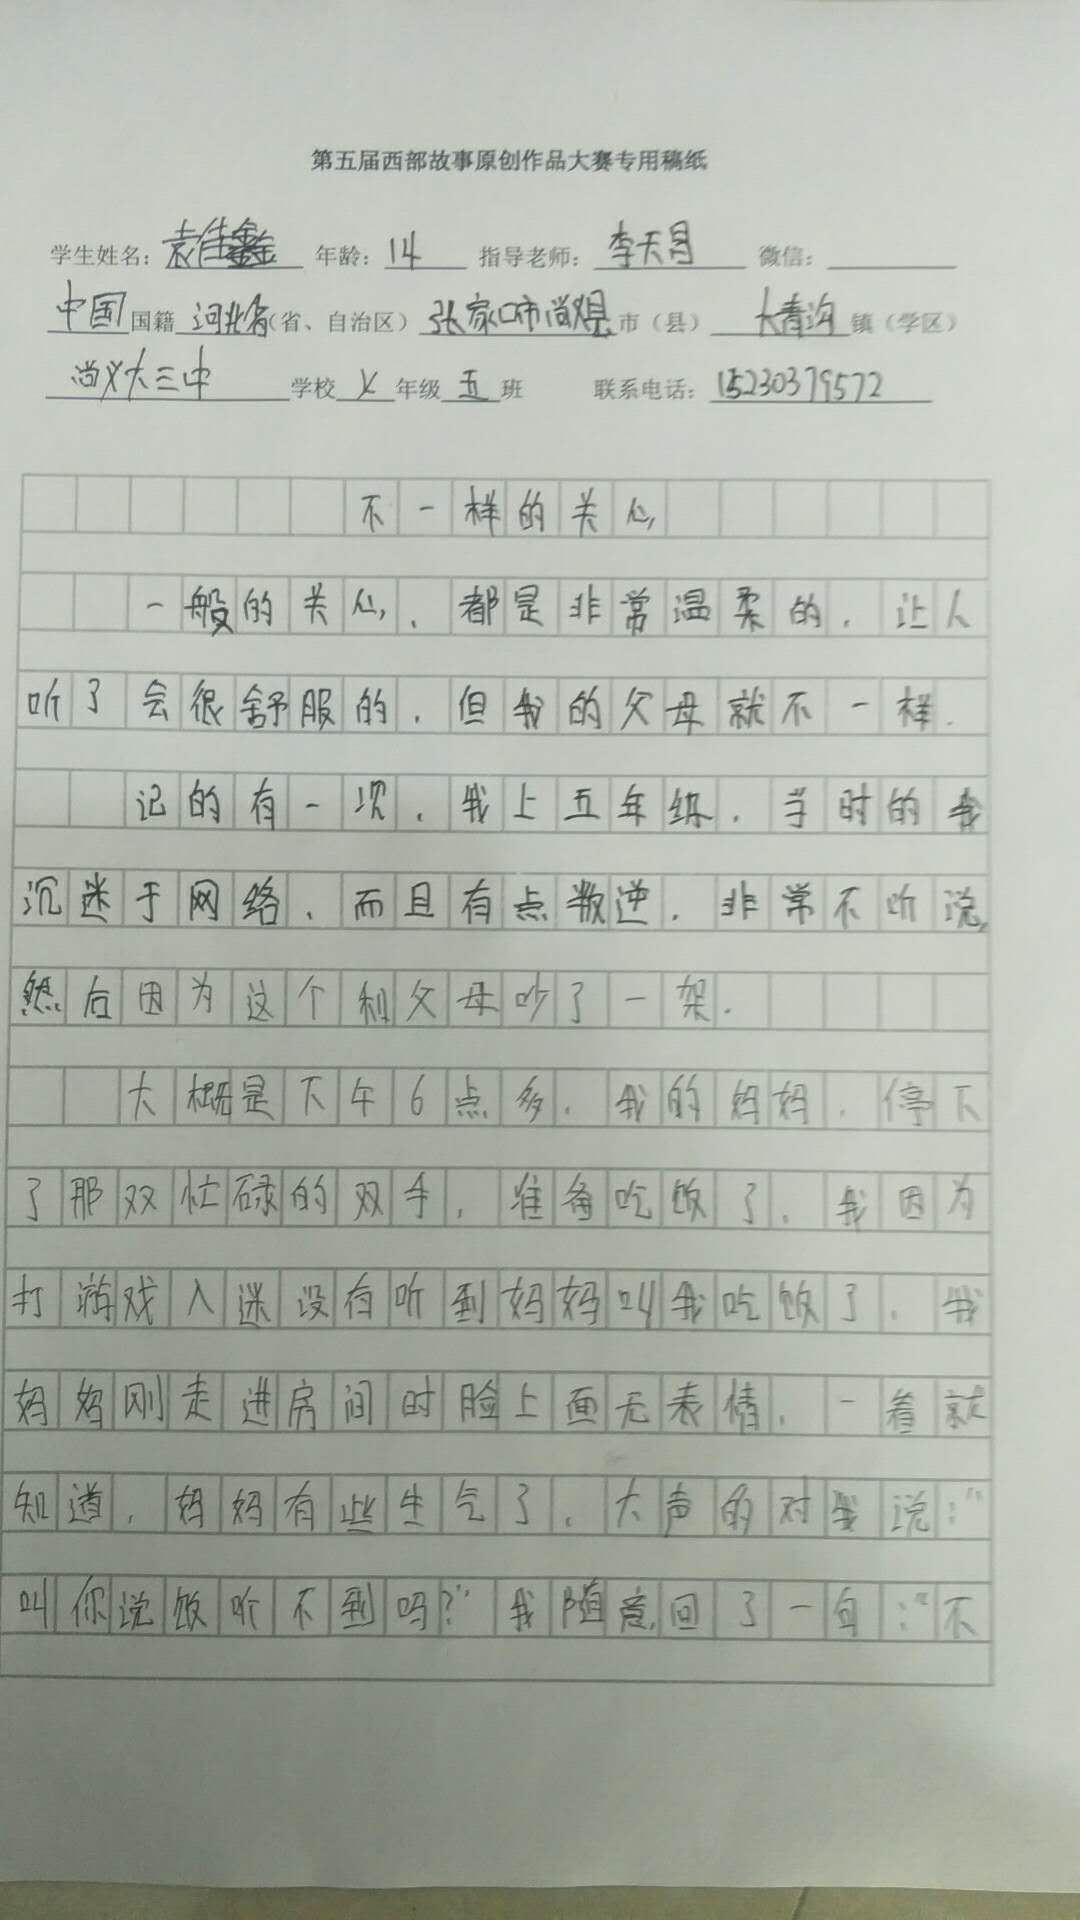 第五届西部故事原创作品大赛专用稿纸
学生姓名：袁佳鑫 年龄：14 指导老师：李天月 微信：
中国国籍 河北省（省、自治区）张家口市尚义县市（县）大青沟镇（学区）
尚义大三中学校 七年级五班 联系电话：15230379572
不一样的关心
一般的关心，都是非常温柔的，让人
听了会很舒服的，但我的父母就不一样.
记的有一次，我上五年级，当时的我
沉迷于网络，而且有点叛逆，非常不听说，
然后因为这个和父母吵了一架.
大概是下午6点多，我的妈妈，停下
了那双忙碌的双手，准备吃饭了，我因为
打游戏入迷没有听到妈妈叫我吃饭了，我
妈妈刚走进房间时脸上面无表情，一看就
知道，妈妈有些生气了，大声的对我说："
叫你说饭听不到吗？"我随意回了一句："不